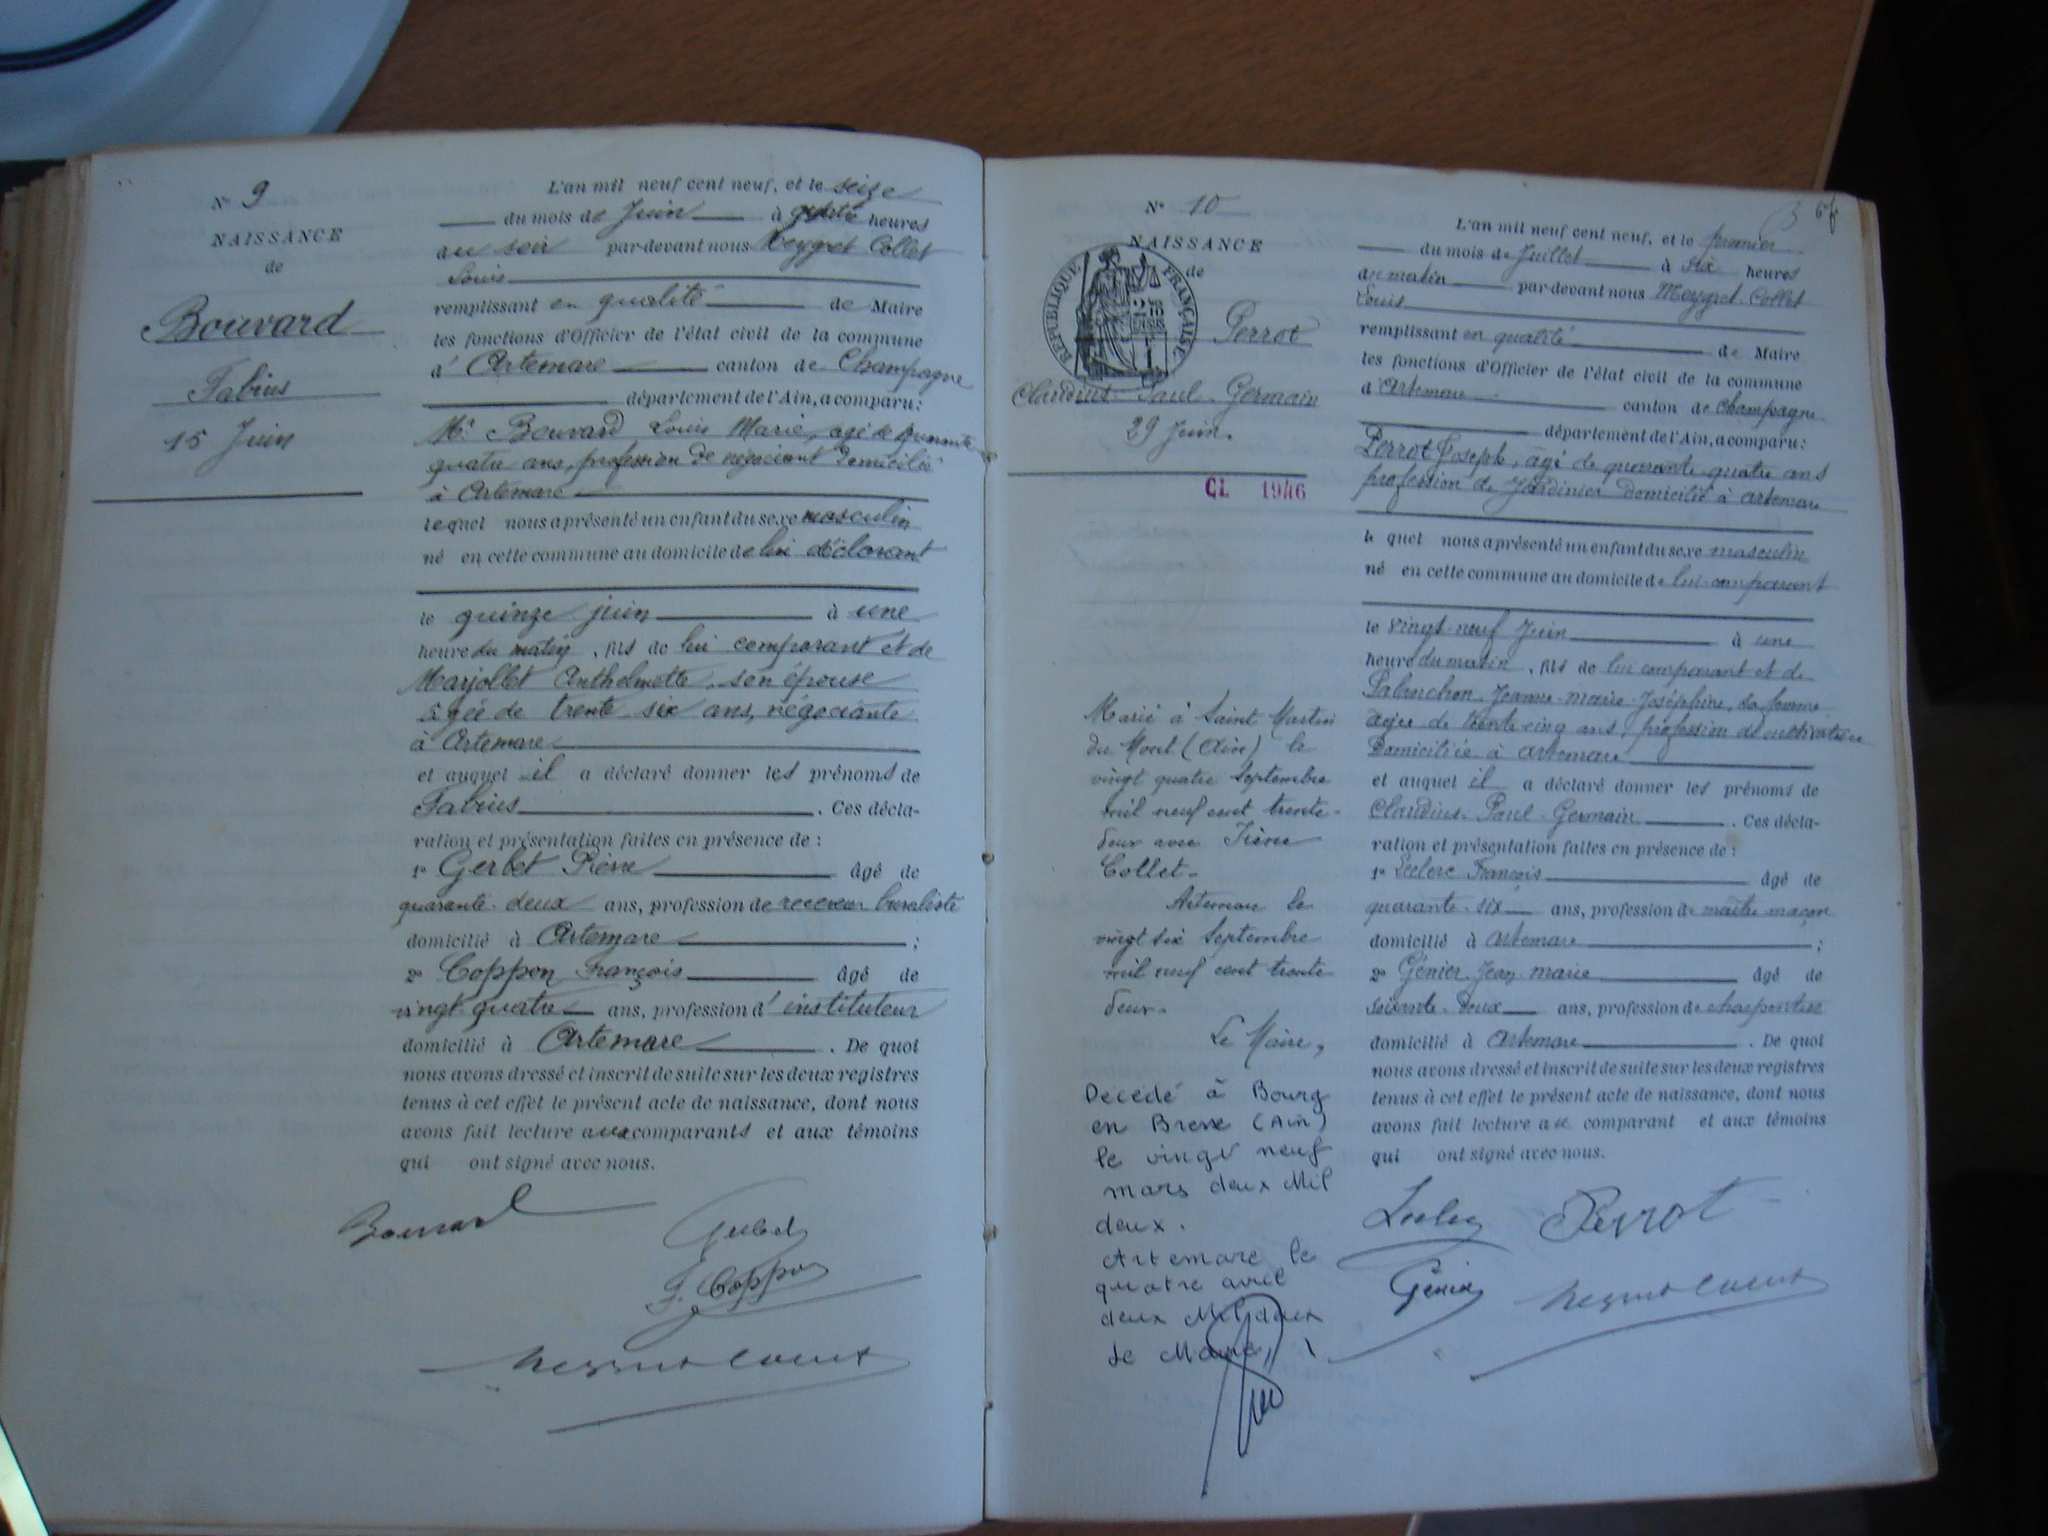 N° 9
NAISSANCE
de
Bouvard
Fabius
15 Juin
L'an mil neuf cent neuf, et le seize
du mois de Juin à quatre heures
au soir par-devant nous Meygret Collet
Louis
remplissant en qualité de Maire
les fonctions d'Officier de l'état civil de la commune
d'Artemare canton de Champagne
département de l'Ain, a comparu:
Mr Bouvard Louis Marie, agé de quarante
quatre ans, profession de négociant Domicilié
à Artemare
lequel nous a présenté un enfant du sexe masculin
né en cette commune au domicile de lui déclarant
le quinze juin à une
heure du matin, fils de lui comparant et de
Marjollet Anthelmette, son épouse
âgée de trente six ans, négociante
à Artemare
et auquel il a déclaré donner les prénoms de
Fabius. Ces décla-
ration et présentation faites en présence de :
1° Gerbet Pierre âgé de
quarante-deux ans, profession de receveur buraliste
domicilié à Artemare ;
2° Coppon François âgé de
vingt quatre ans, profession d'instituteur
domicilié à Artemare. De quoi
nous avons dressé et inscrit de suite sur les deux registres
tenus à cet effet le présent acte de naissance, dont nous
avons fait lecture aux comparants et aux témoins
qui ont signé avec nous.
Bouvard
Gerbet
F. Coppon
Meygret Collet
N° 10
NAISSANCE
de
RÉPUBLIQUE FRANÇAISE
Perrot
Claudius-Paul-Germain
29 Juin.
CL 1946
Marié à Saint Martin
du Mont (Ain) le
vingt quatre Septembre
mil neuf cent trente-
deux avec Irène
Collet.
Artemare le
vingt six Septembre
mil neuf cent trente
deux.
Le Maire,
Décédé à Bourg
en Bresse (Ain)
le vingt neuf
mars deux Mil
deux.
Artemare le
quatre avril
deux Mil deux
Le Maire,
L'an mil neuf cent neuf, et le premier
du mois de Juillet à six heures
du matin par-devant nous Meygret-Collet
Louis
remplissant en qualité de Maire
les fonctions d'Officier de l'état civil de la commune
d'Artemare canton de Champagne
département de l'Ain, a comparu:
Perrot Joseph, âgé de quarante-quatre ans
profession de Jardinier domicilié à Artemare
le quel nous a présenté un enfant du sexe masculin
né en cette commune au domicile de lui-comparant
le vingt-neuf Juin à une
heure du matin, fils de lui comparant et de
Jeanne-marie-Joséphine, sa femme
âgée de trente-cinq ans, profession de cultivatrice
Domiciliée à Artemare
et auquel il a déclaré donner les prénoms de
Claudius-Paul-Germain. Ces décla-
ration et présentation faites en présence de :
1° Leclerc François âgé de
quarante-six ans, profession de maître maçon
domicilié à Artemare ;
2° Génier Jean-marie âgé de
soixante-deux ans, profession de charpentier
domicilié à Artemare. De quoi
nous avons dressé et inscrit de suite sur les deux registres
tenus à cet effet le présent acte de naissance, dont nous
avons fait lecture au comparant et aux témoins
qui ont signé avec nous.
Leclerc Perrot
Génier Meygret Collet